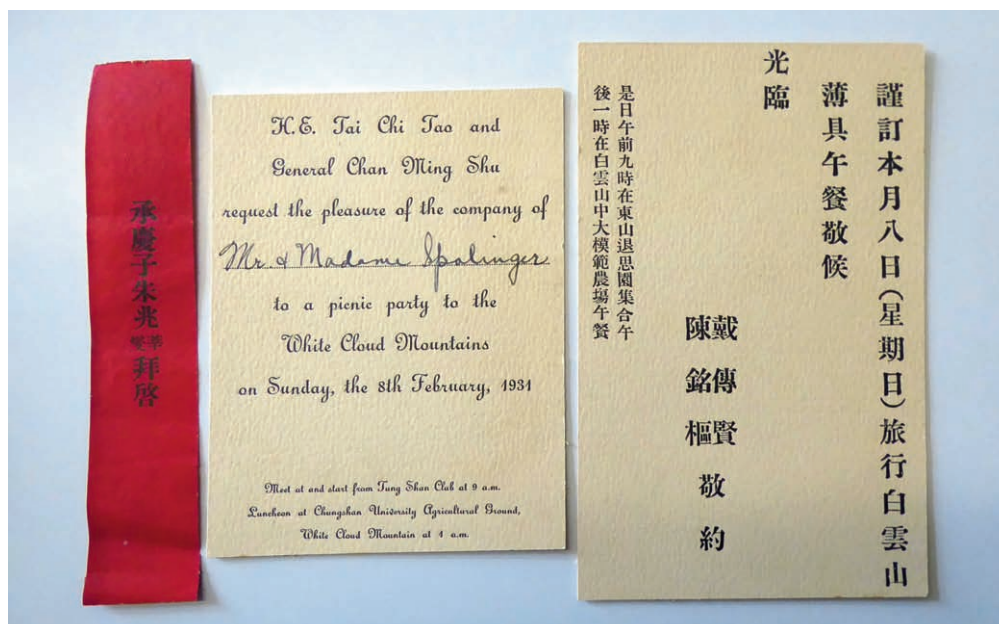 承慶子朱兆華拜啓
H.E. Tai Chi Tao and
General Chan Ming Shu
request the pleasure of the company of
Mr. & Madame Spalinger
to a picnic party to the
White Cloud Mountains
on Sunday, the 8th February, 1931
Meet at and start from Tung Shan Club at 9 a.m.
Luncheon at Chungshan University Agricultural Ground,
White Cloud Mountain at 1 a.m.
謹訂本月八日(星期日)旅行白雲山
薄具午餐敬候
光臨
戴傳賢
陳銘樞
敬約
是日午前九時在東山退思園集合午
後一時在白雲山中大模範農塲午餐